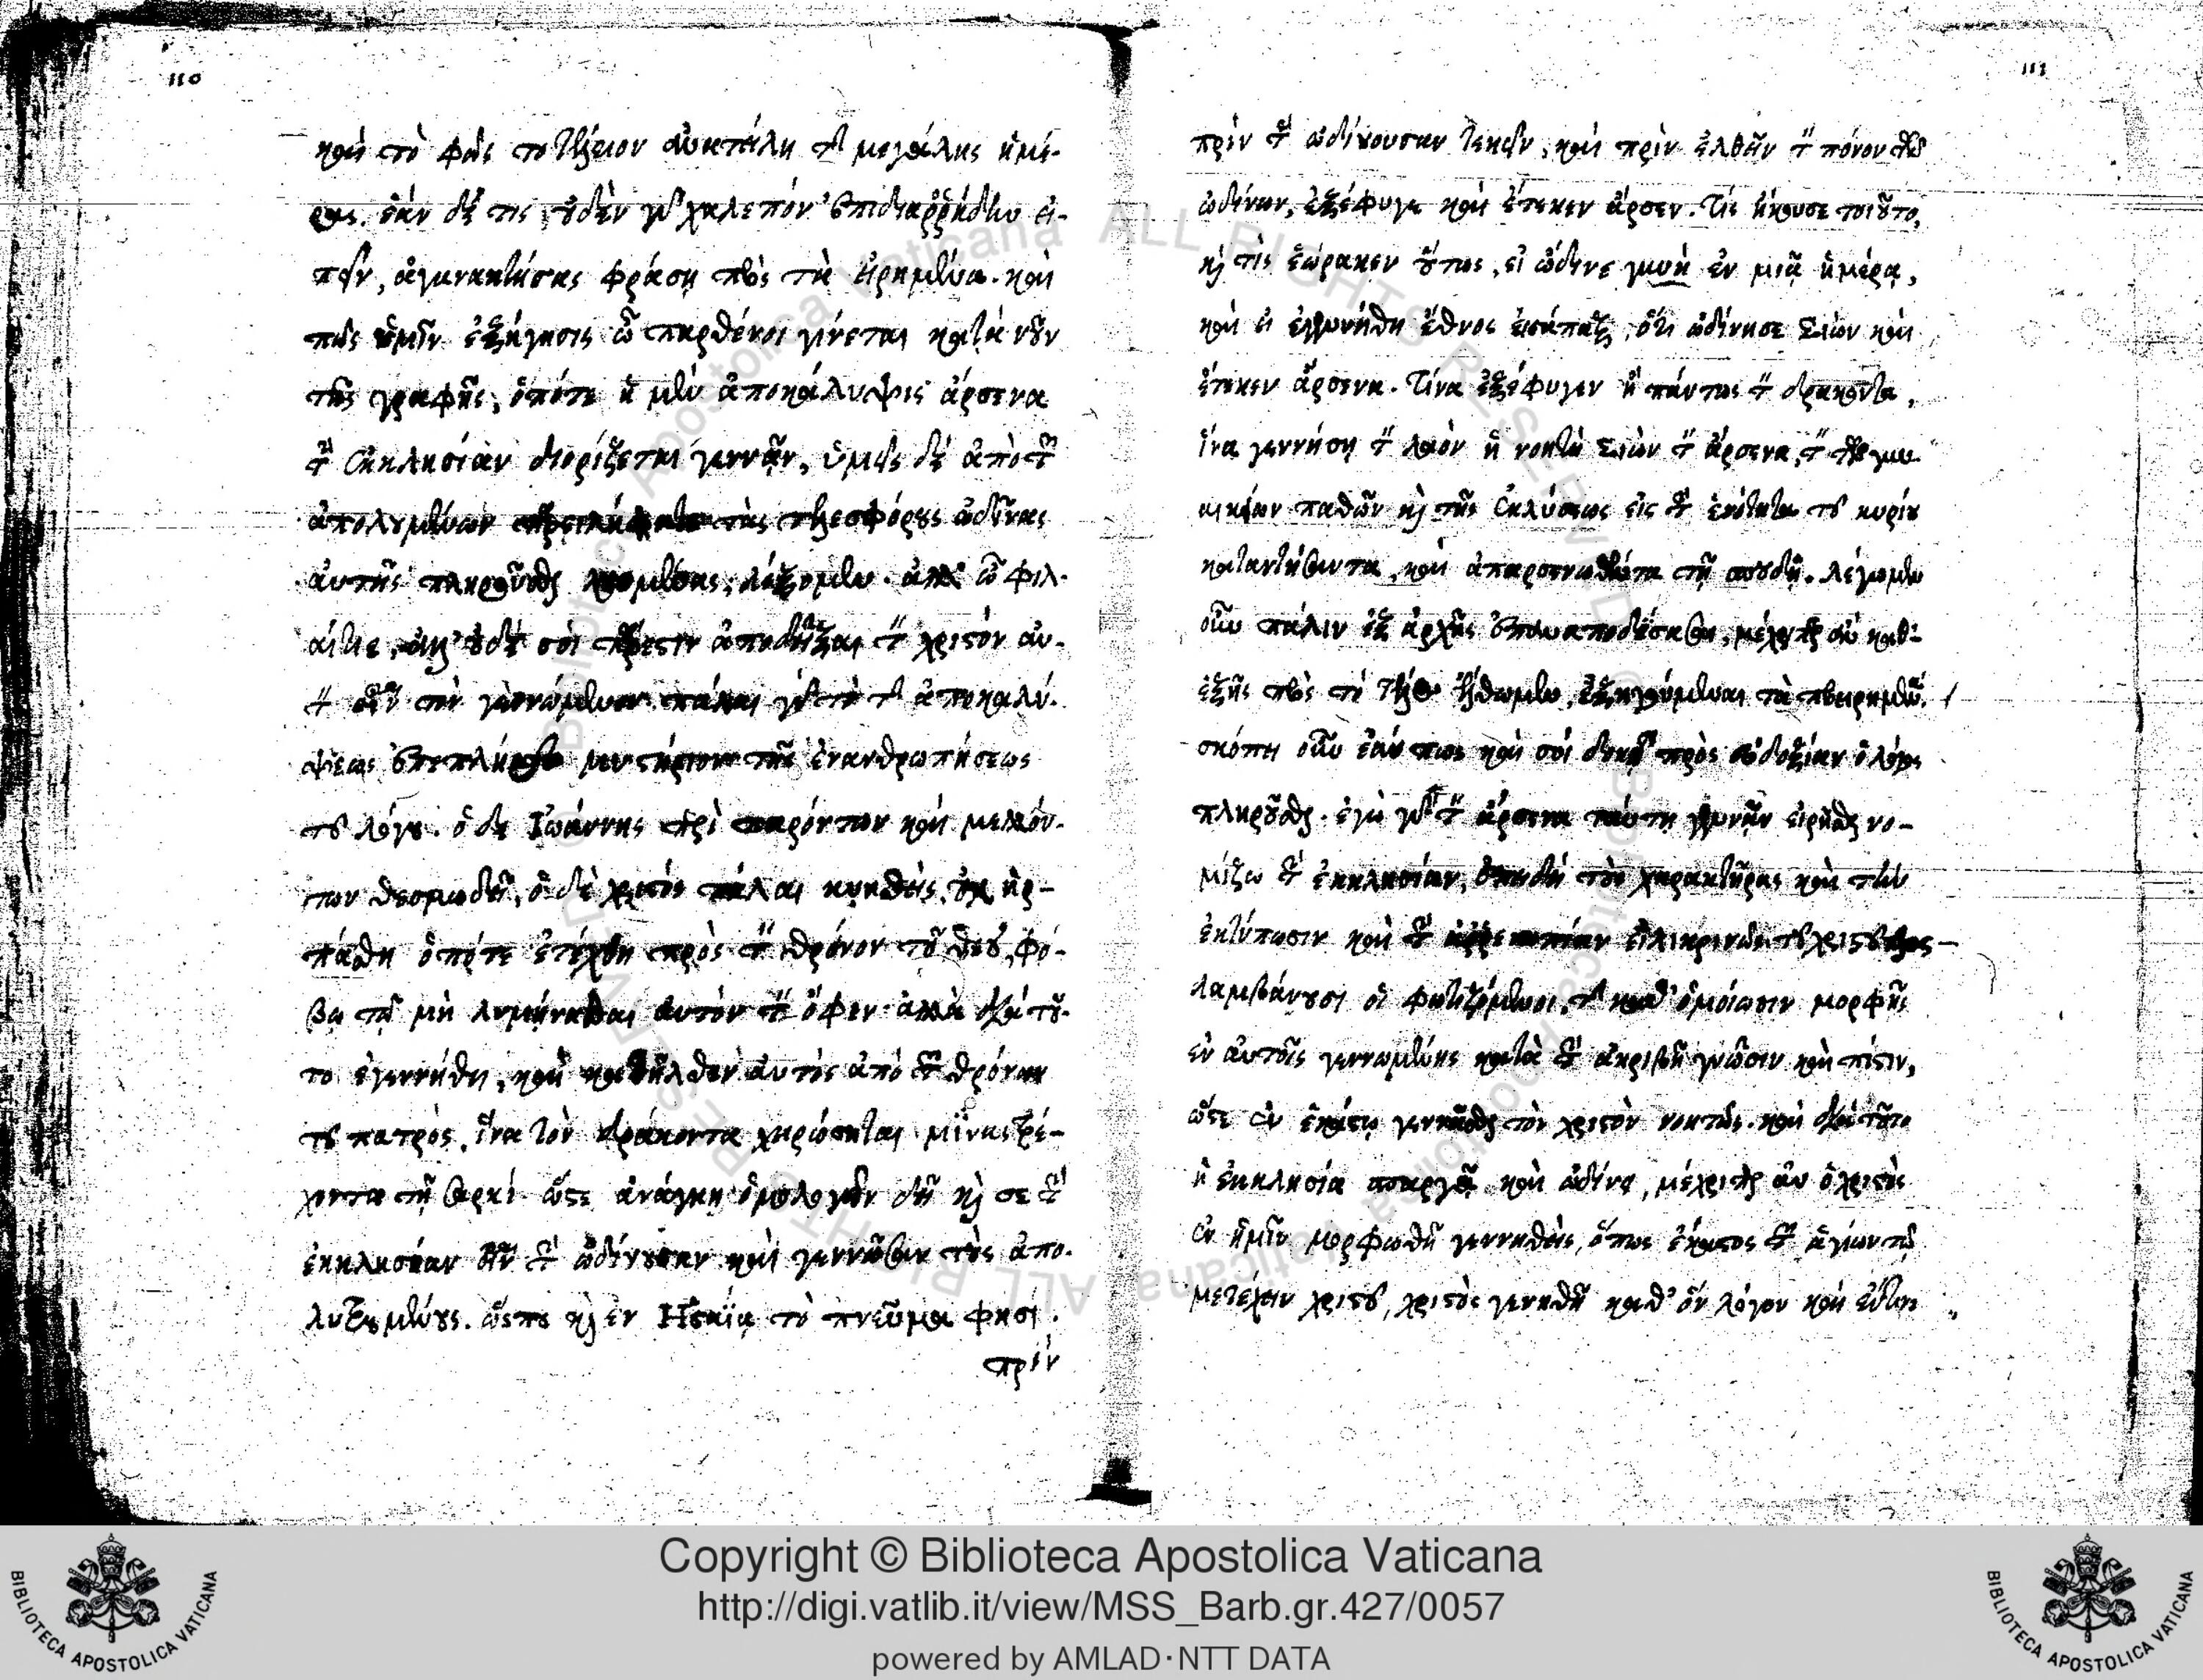 110
καὶ τὸ φῶς τὸ τέλειον ἀνατείλῃ τῆς μεγάλης ἡμέ-
ρας. ἐὰν δέ τις, οὐδὲν γὰρ χαλεπὸν ἐπιδιαῤῥήδην εἰ-
πεῖν, ἀγανακτήσας φράσῃ πρὸς τὰ εἰρημένα· καὶ
πῶς ὑμῖν ἐξήγησις ὦ παρθένοι γίνεται κατὰ νοῦν
τῆς γραφῆς, ὁπότε ἡ μὲν ἀποκάλυψις ἄρσενα
τὴν ἐκκλησίαν διορίζεται γεννᾶν, ὑμεῖς δὲ ἀπὸ τῶν
ἀπολουμένων τὰς τελεσφόρους ὠδῖνας
αὐτῆς πληροῦσθαι λέξομεν. ἀλλ' ὦ φιλ-
αίτιε, οὐδὲ σοὶ ἀποδεῖξαι τὸν χριστὸν αὐ-
τὸν τὸν γεννώμενον· πάλαι γὰρ πρὸ τῆς ἀποκαλύ-
ψεως μυστήριον τῆς ἐνανθρωπήσεως
τοῦ λόγου. ὁ δὲ Ἰωάννης περὶ παρόντων καὶ μελλόν-
των θεσπιωδεῖ, ὁ δὲ χριστὸς πάλαι κυηθεὶς, οὐχ ἡρ-
πάσθη ὁπότε ἐτέχθη πρὸς τὸν θρόνον τοῦ θεοῦ, φό-
βῳ τοῦ μὴ λυμήνασθαι αὐτὸν τὸν ὄφιν· ἀλλὰ διὰ τοῦ-
το ἐγεννήθη, καὶ κατῆλθεν αὐτὸς ἀπὸ τῶν θρόνων
τοῦ πατρὸς, ἵνα τὸν δράκοντα χειρώσηται μείνας τρέ-
χοντα τῇ σαρκί. ὥστε ἀνάγκη ὁμολογεῖν δὴ καὶ σε τὴν
ἐκκλησίαν εἶναι τὴν ὠδίνουσαν καὶ γεννῶσαν τοὺς ἀπο-
λυτρουμένους. ὥσπερ καὶ ἐν Ἡσαΐᾳ τὸ πνεῦμα φησί.
πρίν
111
πρὶν τὴν ὠδίνουσαν τεκεῖν, καὶ πρὶν ἐλθεῖν τὸν πόνον τῶν
ὠδίνων, ἐξέφυγε καὶ ἔτεκεν ἄρσεν. τίς ἤκουσε τοιοῦτο,
καὶ τίς ἑώρακεν οὕτως, εἰ ὤδινε γυνὴ ἐν μιᾷ ἡμέρᾳ,
καὶ εἰ ἐγεννήθη ἔθνος εἰσάπαξ, ὅτι ὠδίνησε Σιὼν καὶ
ἔτεκεν ἄρσενα. τίνα ἐξέφυγεν ἢ πάντως τὸν δράκοντα,
ἵνα γεννήσῃ τὸν λαὸν ἡ νοητὴ Σιὼν τὸν ἄρσενα, τὸν τῶν γυ-
ναικείων παθῶν καὶ τῆς ἐκλύσεως εἰς τὴν ἑνότητα τοῦ κυρίου
καταντήσαντα, καὶ ἀπαρσενωθέντα τῇ σπουδῇ. λέγωμεν
οὖν πάλιν ἐξ ἀρχῆς ἐπαναποδίσασαι, μέχρι περ ἂν καθ-
εξῆς πρὸς τὸ τέλος ἔλθωμεν, ἐξηγούμεναι τὰ προειρημένα.
σκόπει οὖν ἐάν πως καὶ σοὶ δοκῇ πρὸς εὐδοξίαν ὁ λόγος
πληροῦσθαι. ἐγὼ γὰρ τὸν ἄρσενα ταύτῃ γεννᾶν εἰρῆσθαι νο-
μίζω τὴν ἐκκλησίαν, ἐπειδὴ τοὺς χαρακτῆρας καὶ τὴν
ἐκτύπωσιν καὶ τὴν ἀρρενωπίαν εἰλικρινῶς τοῦ χριστοῦ προς-
λαμβάνουσι οἱ φωτιζόμενοι, τῆς καθ' ὁμοίωσιν μορφῆς
ἐν αὐτοῖς γεννωμένης κατὰ τὴν ἀκριβῆ γνῶσιν καὶ πίστιν,
ὥστε ἐν ἑκάστῳ γεννᾶσθαι τὸν χριστὸν νοητῶς. καὶ διὰ τοῦτο
ἡ ἐκκλησία σπαργᾷ καὶ ὠδίνει, μέχρι περ ἂν ὁ χριστὸς
ἐν ἡμῖν μορφωθῇ γεννηθείς, ὅπως ἕκαστος τῶν ἁγίων τῷ
μετέχειν χριστοῦ, χριστὸς γεννηθῇ καθ' ὃν λόγον καὶ
Copyright © Biblioteca Apostolica Vaticana
http://digi.vatlib.it/view/MSS_Barb.gr.427/0057
powered by AMLAD·NTT DATA
BIBLIOTECA APOSTOLICA VATICANA
BIBLIOTECA APOSTOLICA VATICANA